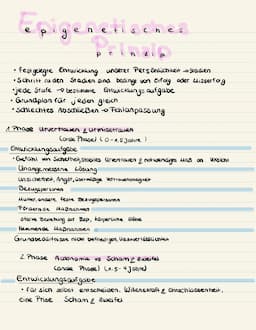 Epigenetisches
Prinzip
epigenetisches
prinzip
• Festgelegte Entwicklung unserer Persönlichkeit → Stadien
• Schritt in den Stadien sind abhängig von Erfolg oder Misserfolg
• jede Stufe → bestimmte Entwicklungsaufgabe
• Grundplan für jeden gleich
• schlechtes Abschließen → Fehlanpassung
1. Phase Urvertrauen & Urmisstrauen
(orale Phase) (0-1,5 Jahre)
Entwicklungsaufgabe
• Gefühl von Sicherheit, stabiles Urvertrauen & notwendiges Maß an
Unangemessene Lösung
Unsicherheit, Angst, übermäßige
Bezugspersonen
Mutter, andere feste Bezugspersonen
Fördernde Maßnahmen
starke Beziehung zur Bzp, körperliche Nähe
Hemmende Maßnahmen
Grundbedürfnisse nicht befriedigen,
2. Phase Autonomie vs Scham & Zweifel
(anale Phase) (1,5-4 Jahre)
Entwicklungsaufgabe
• für sich selbst entscheiden, Willenskraft & Entschlossenheit,
ohne Scham & Zweifel